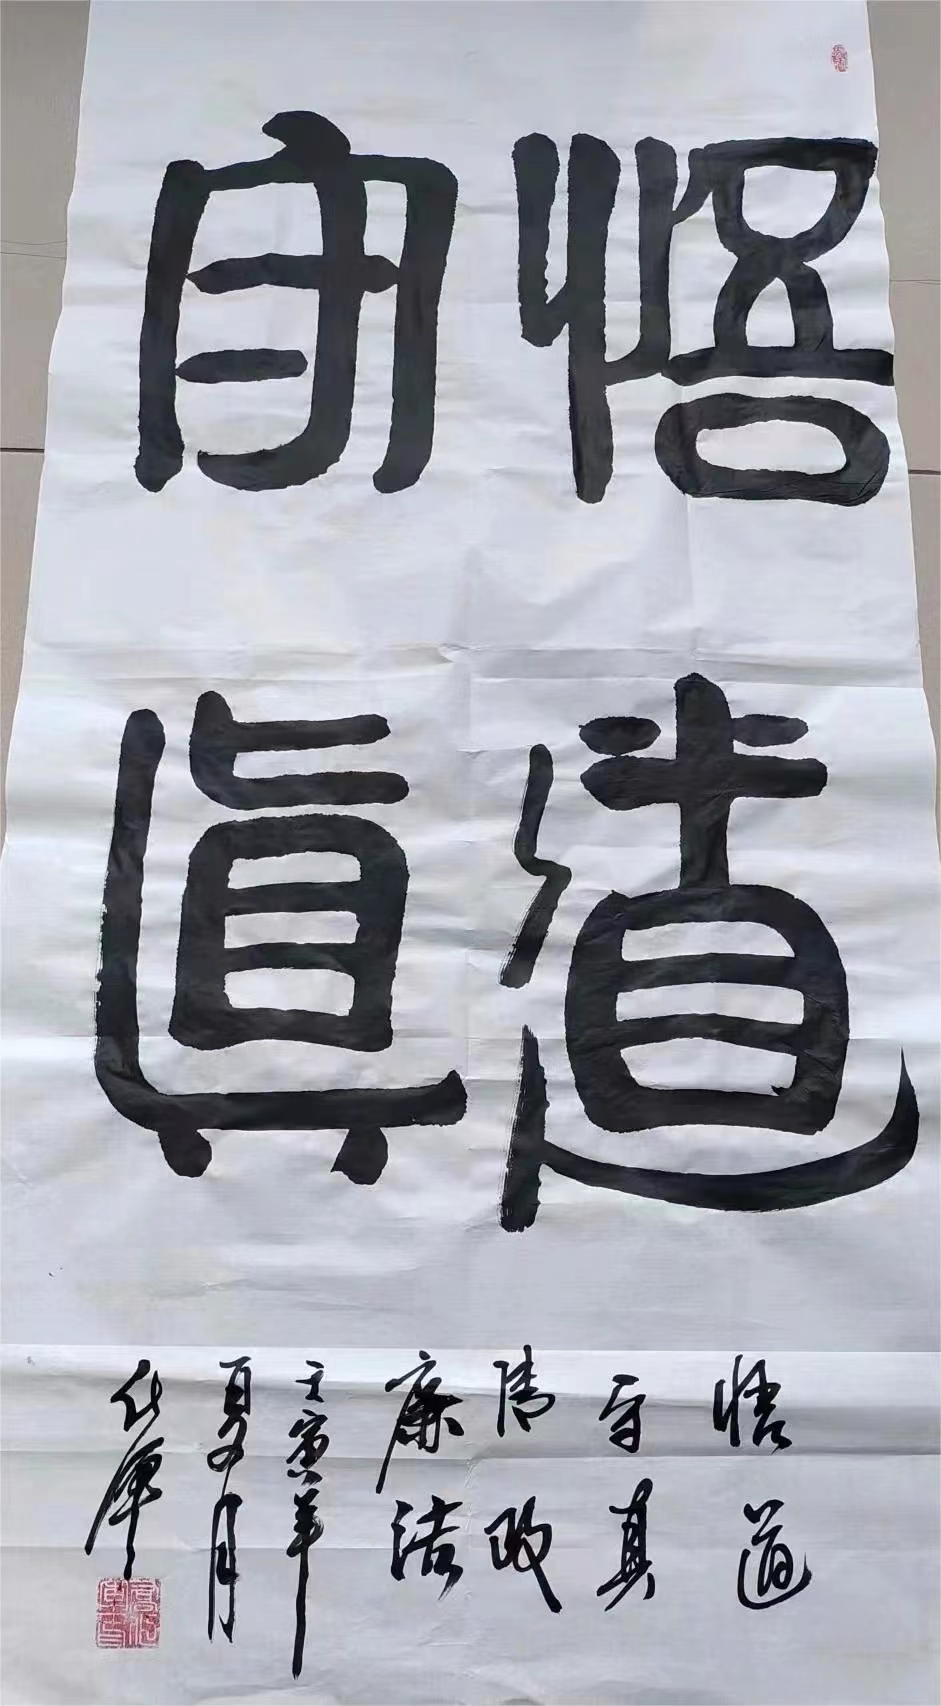 悟道
守真
悟道
守真
清政
廉洁
壬寅年
夏月